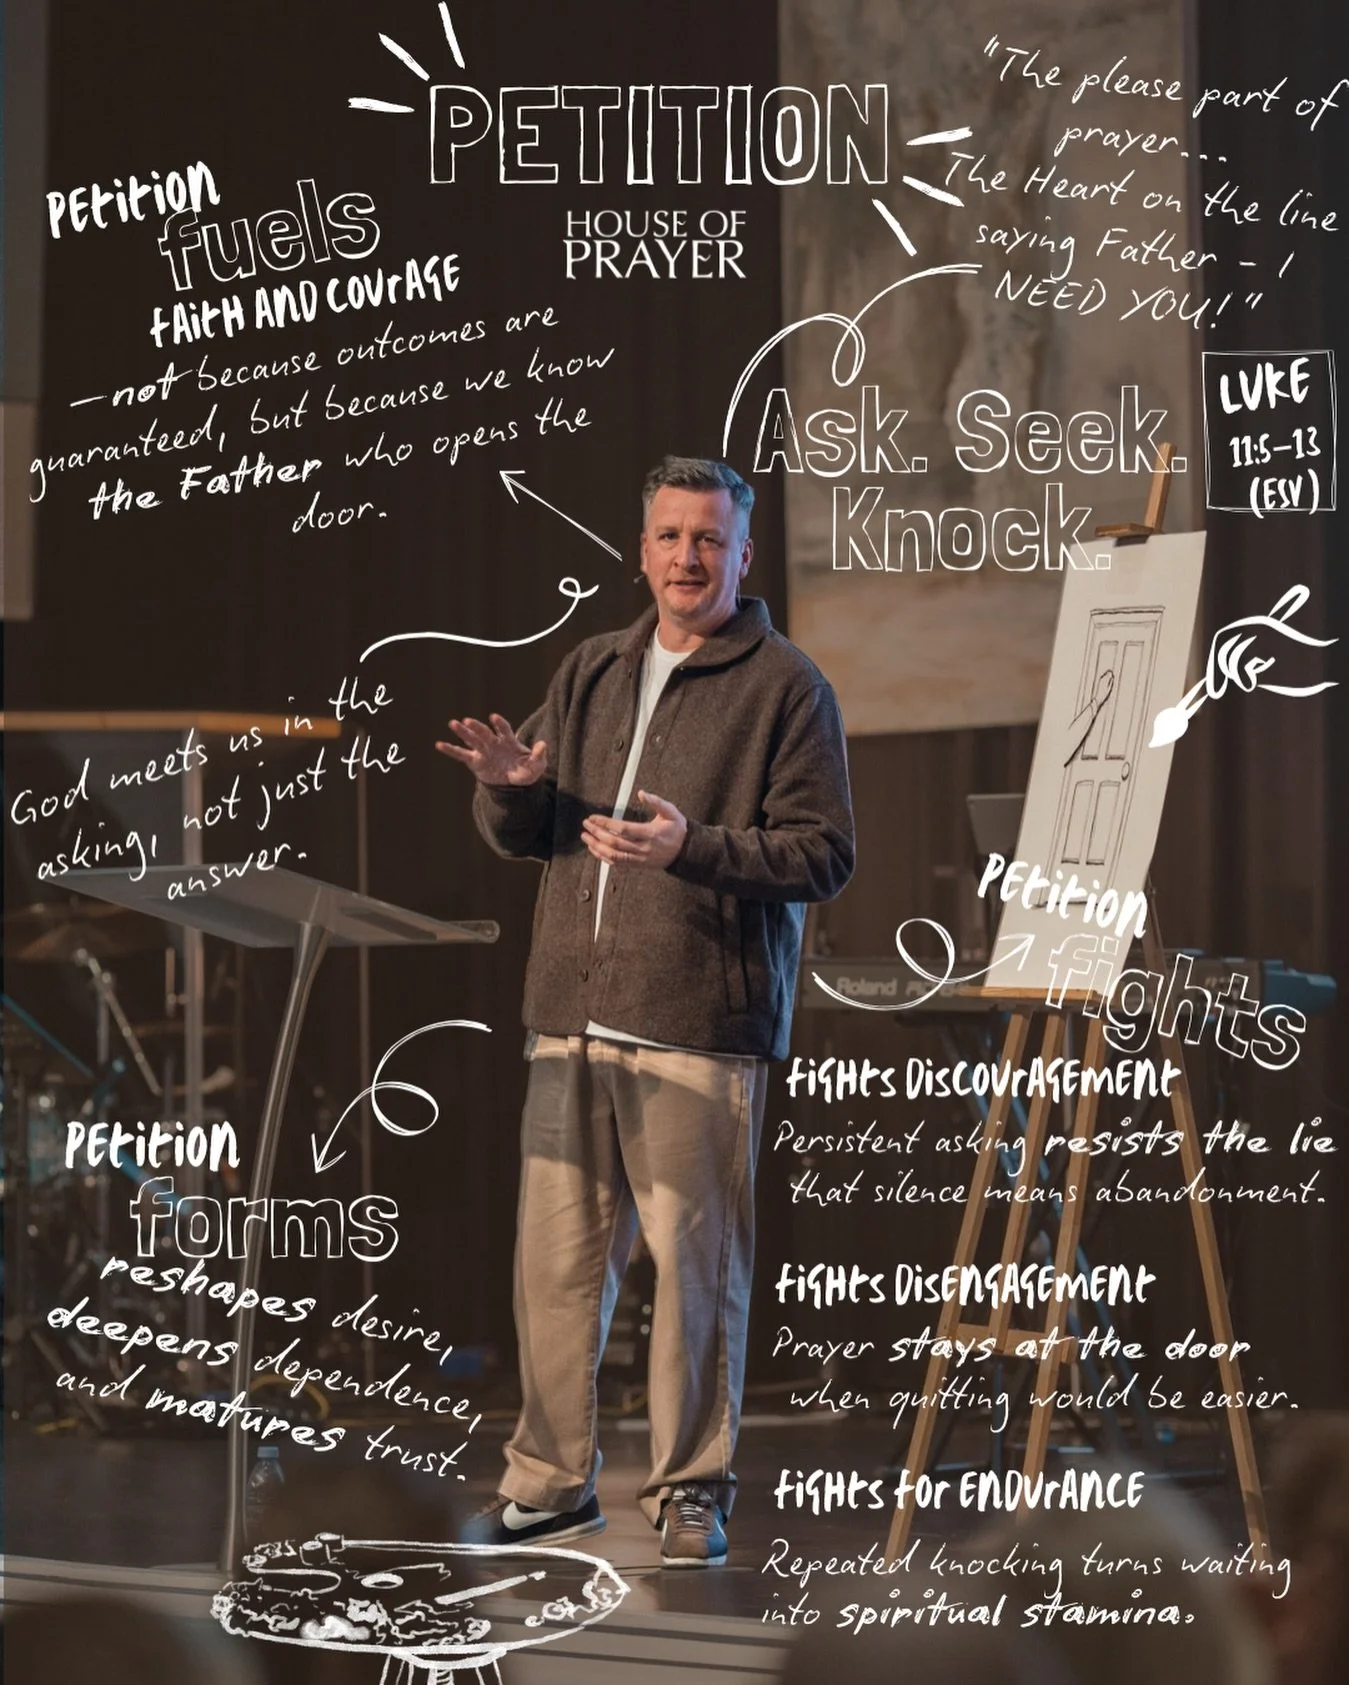 PETITION
HOUSE OF
PRAYER
"The please part of
prayer...
The Heart on the line
saying Father - I
NEED YOU!"
PEtition
fuels
fAitH AND COUrAGE
—not because outcomes are
guaranteed, but because we know
the Father who opens the
door.
Ask. Seek.
Knock.
LUKE
11:5-13
(ESV)
God meets us in the
asking, not just the
answer.
PEtition
fights
Roland
fiGHts DisCOUrAGEmENt
Persistent asking resists the lie
that silence means abandonment.
fiGHts DisENGAGEmENt
Prayer stays at the door
when quitting would be easier.
fiGHts for ENDUrANCE
Repeated knocking turns waiting
into spiritual stamina.
PEtition
forms
reshapes desire,
deepens dependence,
and matures trust.